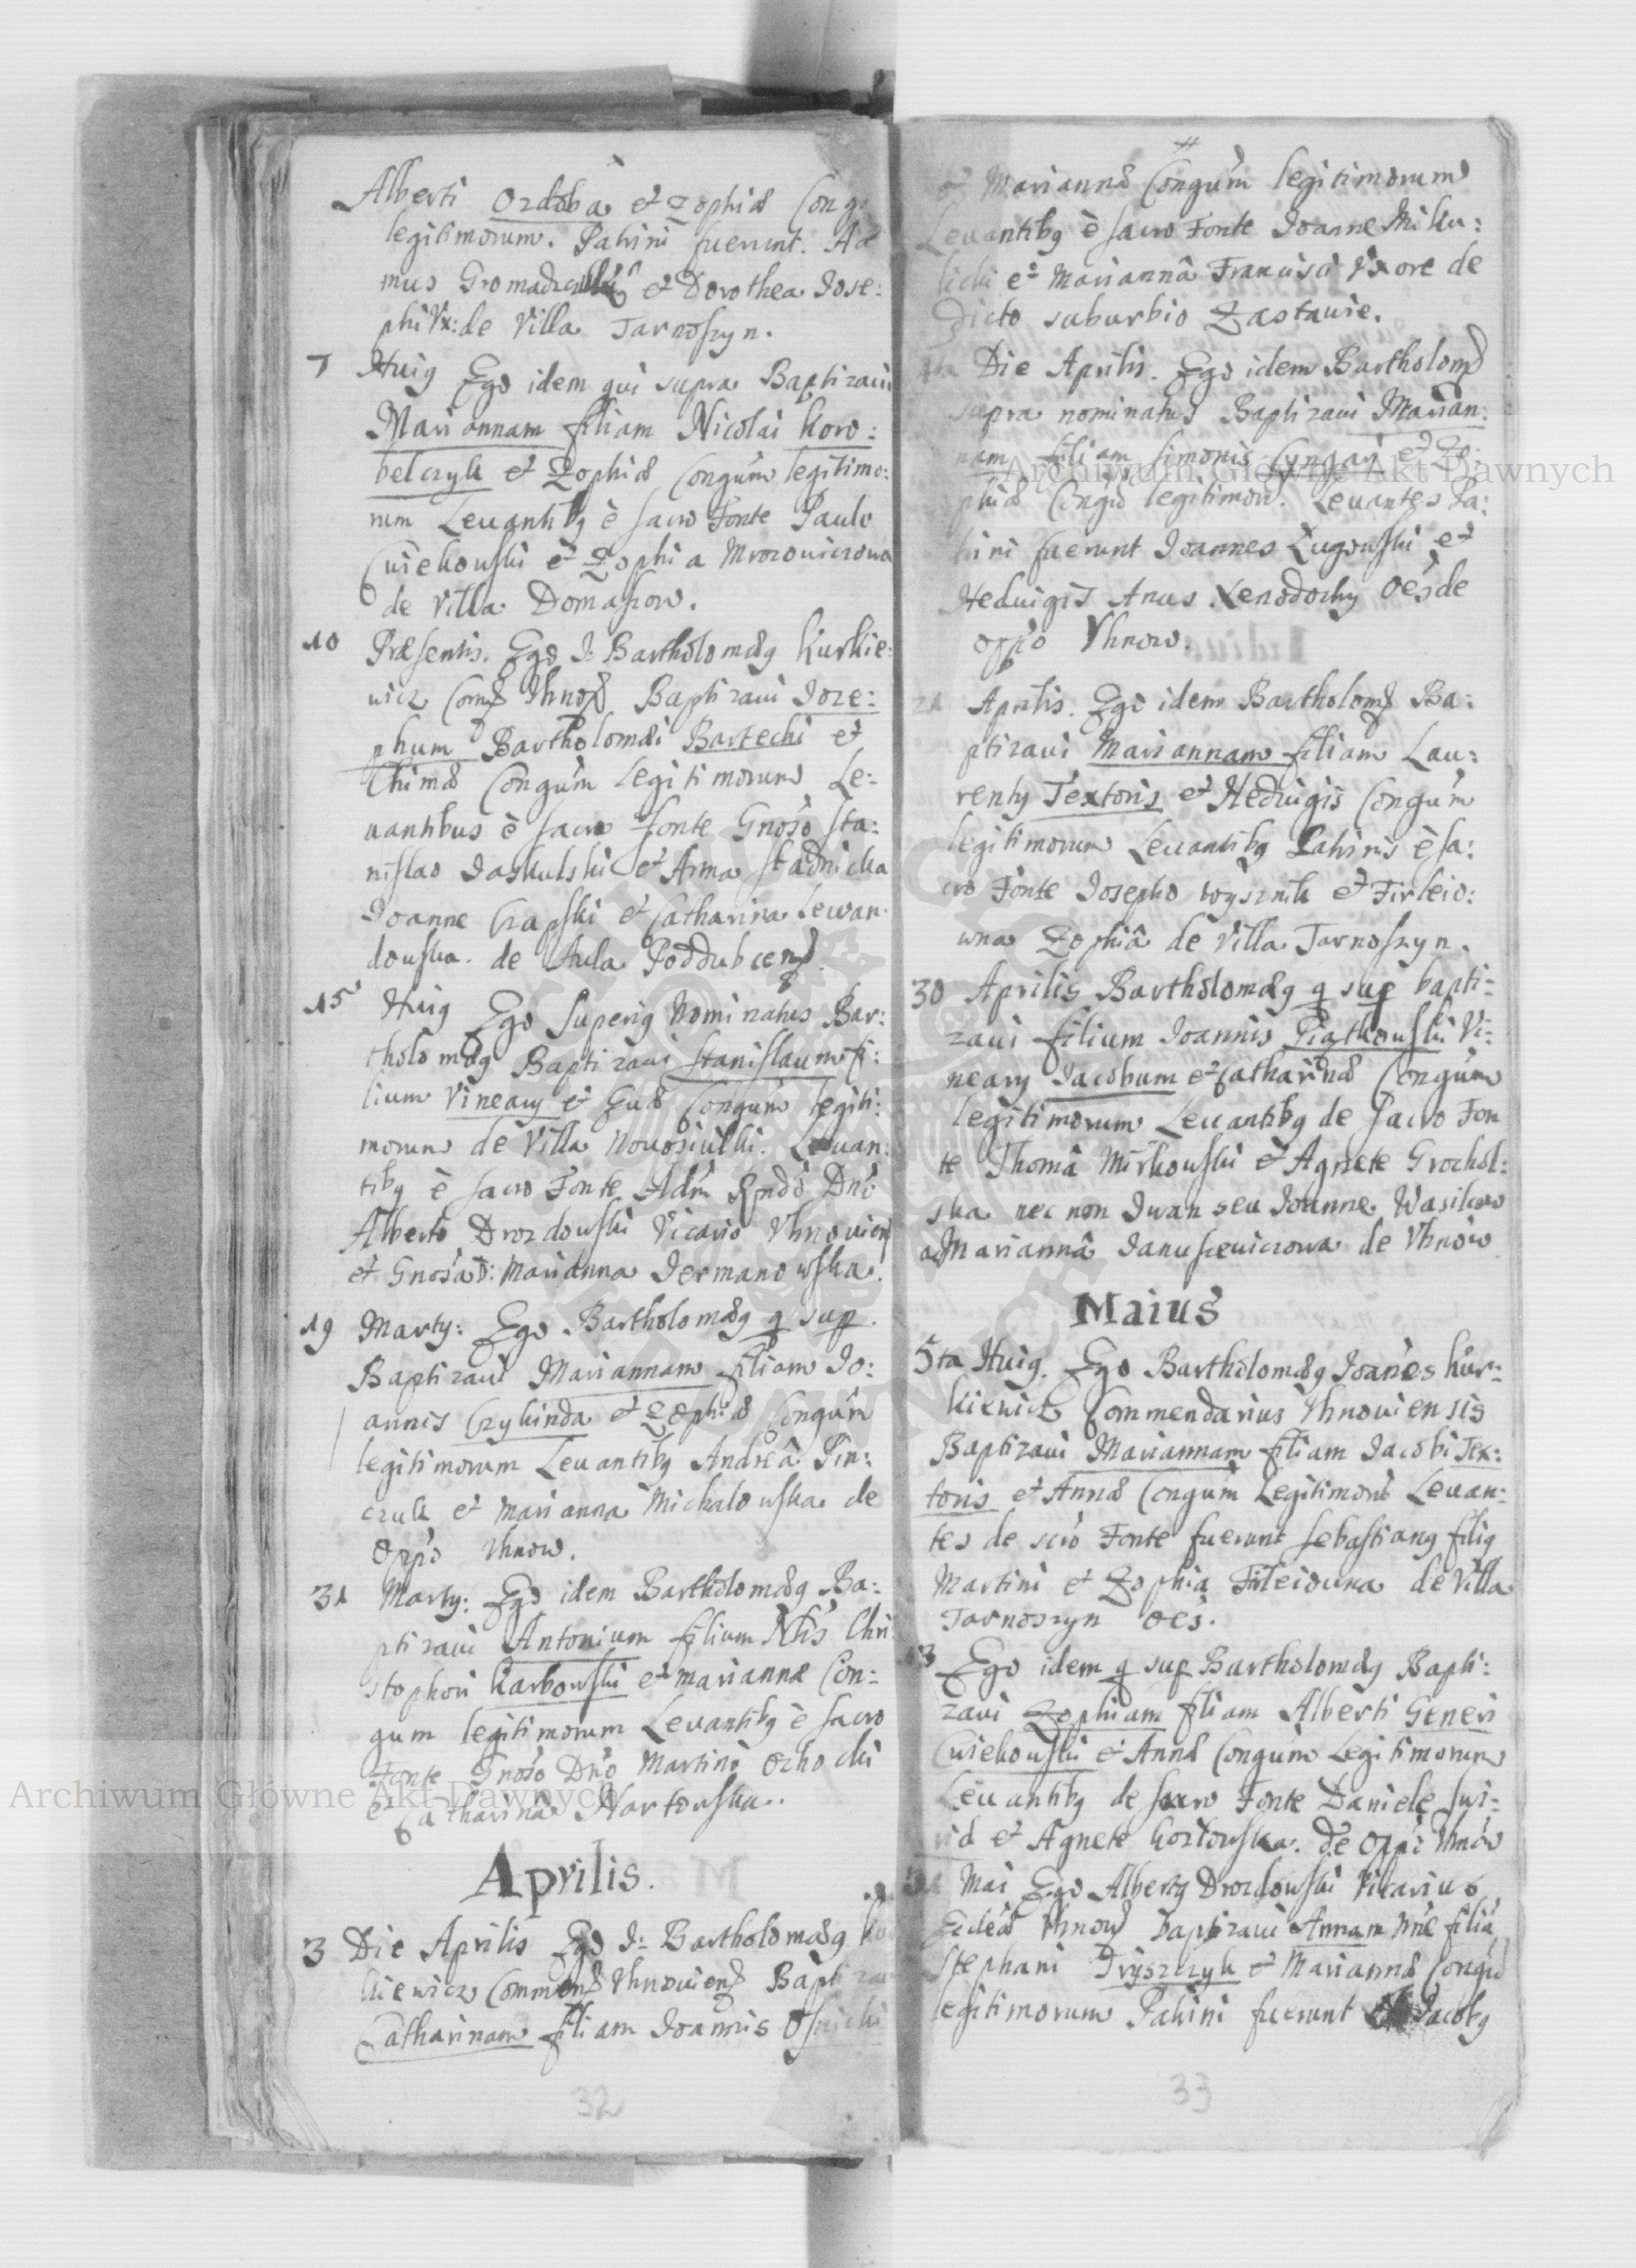 Alberti Ozdoba et Zophiæ Cong
legitimorum. Patrini fuerunt. Ada
mus et Dorothea Jose:
phi Vx: de Villa Tarnoszyn.
7 Huig Ego idem qui supra Baptizaui
Mariannam filiam Nicolai Koro:
belczyk et Zophiæ Congúm legitimo:
rum Leuantibg è Sacro Fonte Paulo
Cwiekowski et Zophia Mrozowiczowa
de Villa Domaszow.
10 Præsentis. Ego J: Bartholomæg Kurkie:
wicz Baptizaui Joze:
phum Bartholomæi Bartecki et
Congúm Legitimorum Le:
uantibus è sacro fonte Gnoso Sta:
nislao Jaskulski et Anna Stadnicka
Joanne Czapski et Catharina Lewan:
douska. de Aula
15 Huig Ego Superig Nominatus Bar:
tholomæg Baptizaui Stanislaum fi:
lium Vineary et Euæ Congúm legiti:
morum de Villa Nouosiułki. Leuan:
tibg è sacro Fonte Adm Rndo Dno
Alberto Drozdowski Vicario Vhnouien
et Gnosa D: Marianna Jermanowska.
19 Marty: Ego Bartholomæg q sup.
Baptizaui Mariannam filiam Jo:
annis Czykinda et Zophiæ Congúm
legitimorum Leuantibg Andreâ Pin:
czuk et Marianna Michalowska de
Oppo Vhnow.
31 Marty: Ego idem Bartholomæg Ba:
ptizaui Antonium filium Nlis Chri
stophori Karbowski et Mariannæ Con:
gum legitimorum Leuantibg è sacro
Fonte Gnoso Dno Martino Ozhocki
et Catharina Nartowska.
Aprilis.
3 Die Aprilis Ego J: Bartholomæg
kiewicz Baptiza
Catharinam filiam Joannis
32
et Mariannæ Congúm legitimorum
Leuantibg è sacro Fonte Joanne Miku:
licki et Mariannâ Francisci Vxore de
Dicto suburbio Zastawie.
Die Aprilis. Ego idem Bartholom
supra nominatus Baptizaui Marian:
nam filiam Simonis Cyngay et Zo:
phiæ legitimor. Leuantes Pa:
trini fuerunt Joannes Lugowski et
Heduigis Anus Xenodochy Oes de
oppo Vhnow.
21 Aprilis. Ego idem Bartholom Ba:
ptizaui Mariannam filiam Lau:
renty Textoris et Heduigis Congúm
legitimorum Leuantibg Patrinis è sa:
cro Fonte Josepho et Firleio:
wna Zophiâ de Villa Tarnoszyn.
30 Aprilis Bartholomæg q sup bapti:
zaui filium Joannis Piątkowski Vi:
neary Jacobum et Catharinæ Congúm
legitimorum Leuantibg de Sacro Fon
te Thomâ Mirkowski et Agnete Grochol:
ska nec non Iwan seu Joanne
Mariannâ Januszewiczowa de Vhnow
Maius
5ta Huig. Ego Bartholomæg Joanes Kur:
kiewicz Commendarius Vhnouiensis
Baptizaui Mariannam filiam Jacobi Tex:
toris et Annæ Congúm Legitimorú Leuan:
tes de scro Fonte fuerunt Sebastiang filig
Martini et Zophia de Villa
Tarnoszyn oes.
13 Ego idem q sup Bartholomæg Bapti:
zaui Zophiam filiam Alberti Generi
Cwiekowski et Annæ Congúm Legitimorum
Leuantibg de sacro Fonte Daniele
et Agnete Kozłowska. de Oppo Vhnow
Mai Ego Albertg Drozdowski Vicarius
baptizaui Annam filiâ
Stephani Jryszczyk et Mariannæ Congú
legitimorum Patrini fuerunt Jacobg
33
Archiwum Główne Akt Dawnych
Archiwum Główne Akt Dawnych